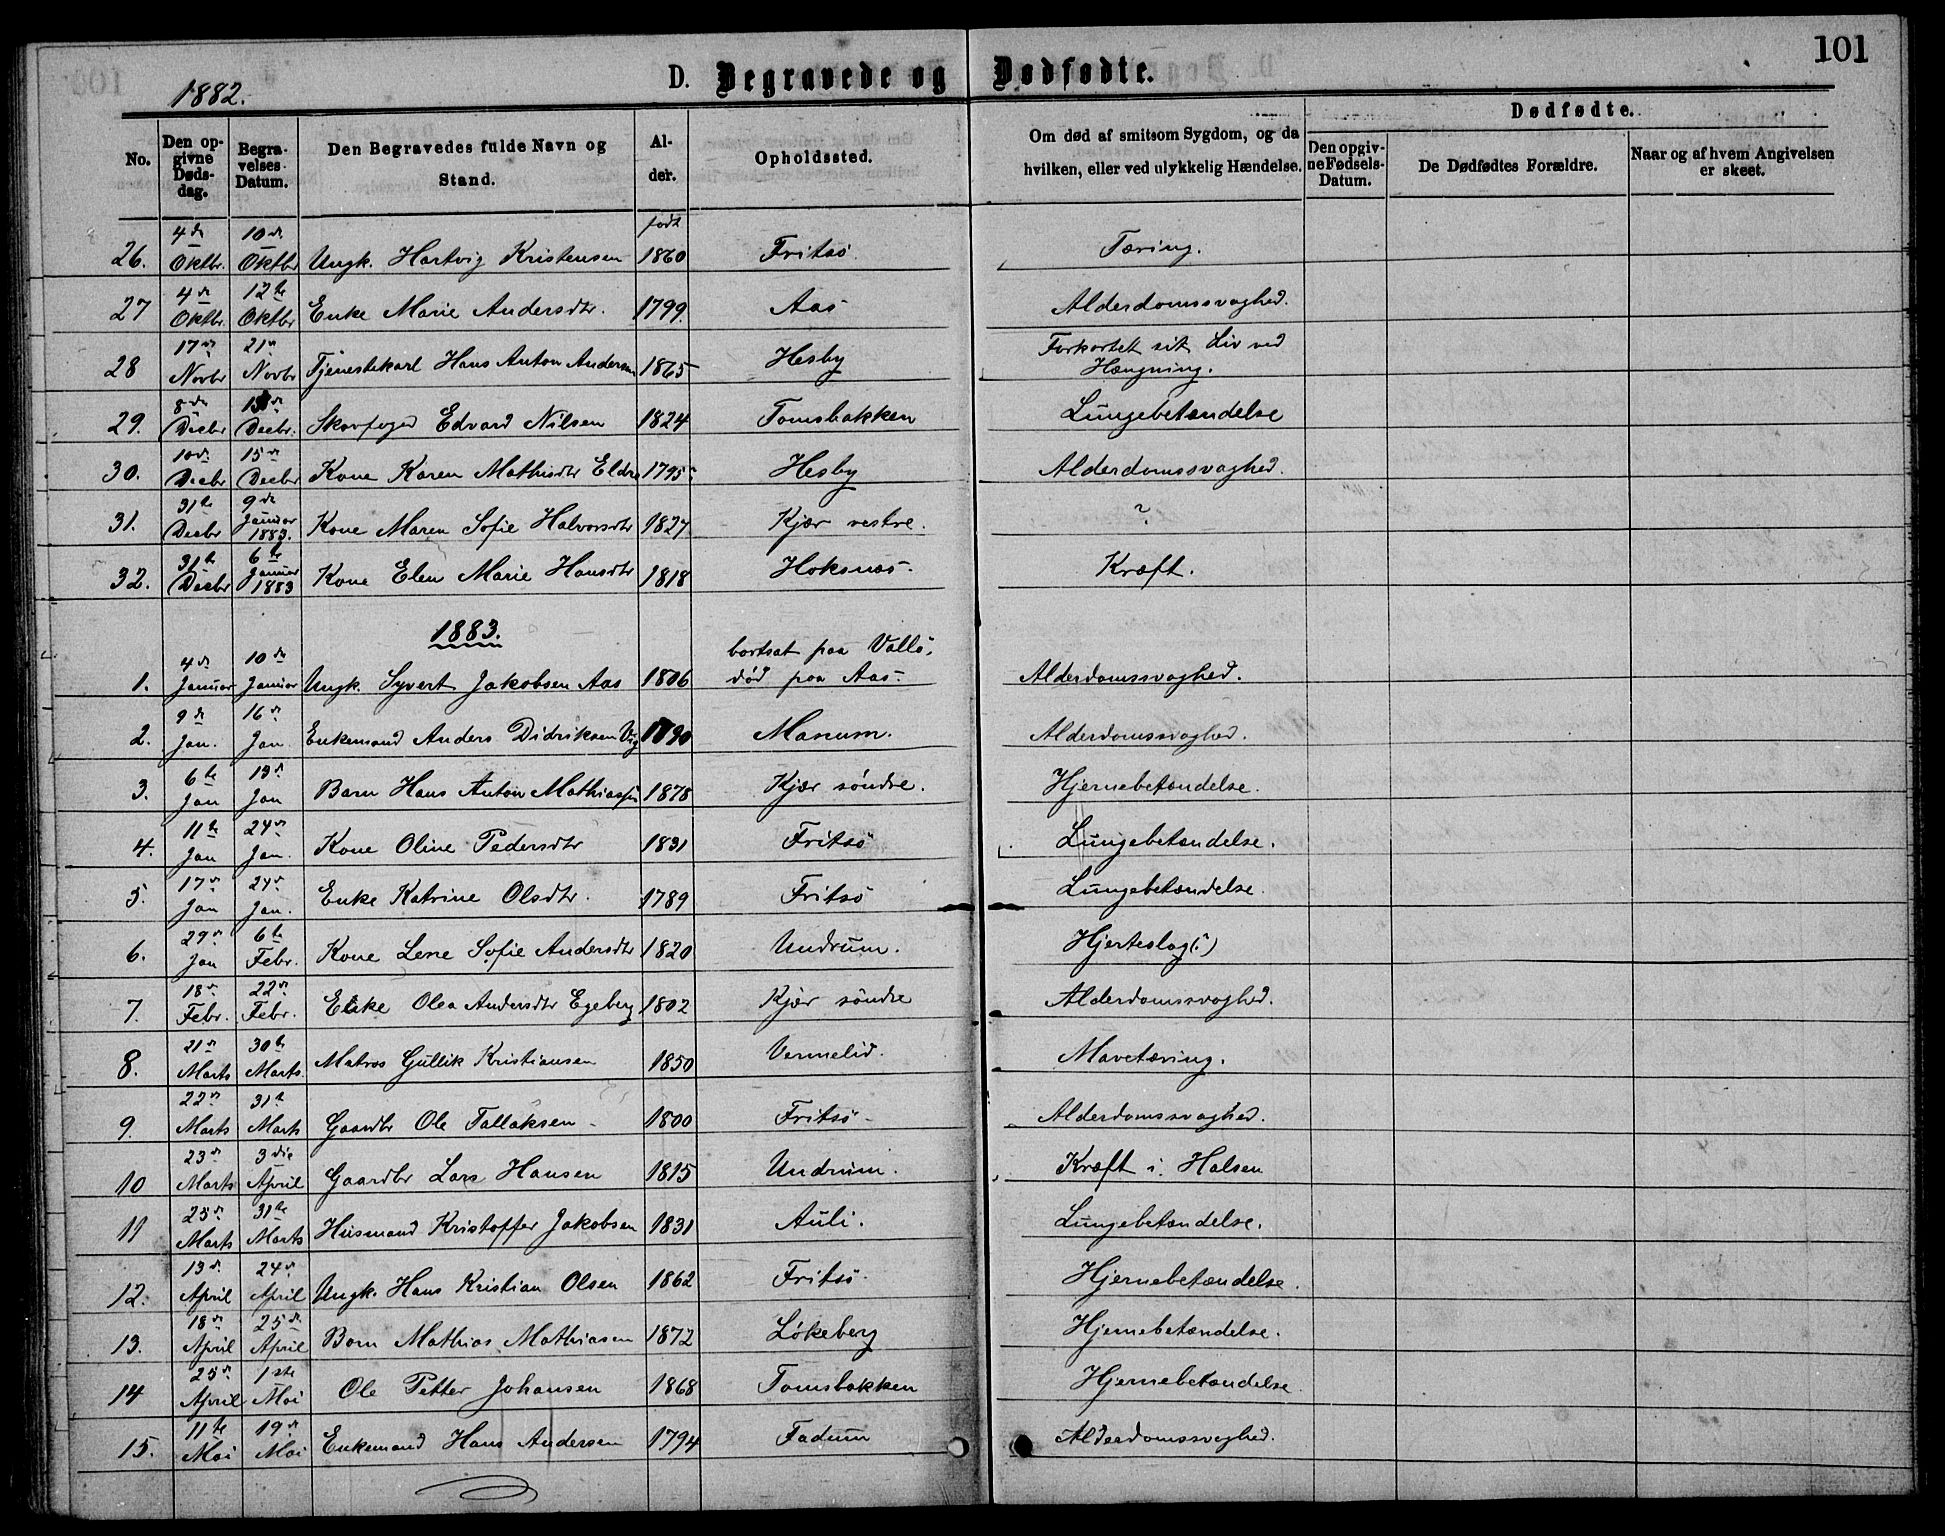 101
1882.
D. Begravede og Dødfødte.
No.
Den opgivne Dødsdag.
Begravelses Datum.
Den Begravedes fulde Navn og Stand.
Alder.
Opholdssted.
Om død af smitsom Sygdom, og da hvilken, eller ved ulykkelig Hændelse.
Dødfødte.
Den opgivne Fødsels-Datum.
De Dødfødtes Forældre.
Naar og af hvem Angivelsen er skeet.
født
26. 4de Oktbr. 10de Oktbr Ungk. Hartvig Kristensen 1860 Fritsø. Tæring.
27 4de Oktbr. 12te Oktbr Enke Marie Andersdtr. 1799. Aas Alderdomssvaghed.
28 17de Novbr 21de Novbr Tjenestekarl Hans Anton Andersen 1865 Hesby Forkortet sit Liv ved Hængning.
29. 8de Decbr Decbr. Skovfoged Edvard Nilsen 1824 Tomsbakken Lungebetændelse
30. 10de Decbr 15de Decbr Kone Karen Mathisdtr Eldre 1795 Hesby Alderdomssvaghed.
31. 31te Decbr 9de Januar 1883. Kone Maren Sofie Halvorsdtr 1827 Kjær vestre. ?
32. 31te Decbr 6te Januar 1883 Kone Elen Marie Hansdtr 1818 Hoksnæs. Kræft.
1883.
1. 4de Januar 10de Januar Ungk. Syvert Jakobsen Aas 1806 bortsat paa Vallø, død paa Aas. Alderdomssvaghed.
2. 9de Jan. 16de Jan. Enkemand Anders Didriksen 1790 Manum. Alderdomssvaghed.
3. 6te Jan 13de Jan Barn Hans Anton Mathiassen 1878 Kjær søndre. Hjernebetændelse.
4. 11te Jan 24de Jan. Kone Oline Pedersdtr 1831 Fritsø Lungebetændelse.
5. 17de Jan 24de Jan. Enke Katrine Olsdtr. 1789 Fritsø Lungebetændelse.
6. 29de Jan 6te Febr. Kone Lene Sofie Andersdtr 1820 Undrum. Hjerteslag(?)
7. 18de Febr. 22de Febr. Enke Olea Andersdtr Egeberg 1802 Kjær søndre Alderdomssvaghed.
8. 21de Marts 30te Marts. Matros Gullik Kristiansen 1850 Vermelid. Mavetæring.
9. 22de Marts 31te Marts Gaardbr Ole Tallaksen 1800 Fritsø Alderdomssvaghed.
10 23de Marts 3die April Gaardbr Lars Hansen 1815 Undrum. Kræft i Halsen
11 25de Marts 31te Marts Husmand Kristoffer Jakobsen 1831 Auli. Lungebetændelse.
12. 13de April 24de April Ungk. Hans Kristian Olsen 1862 Fritsø. Hjernebetændelse.
13. 18de April 25de April Barn Mathias Mathiasen 1872 Løkeberg Hjernebetændelse.
14 25de April 1ste Mai Ole Petter Johansen 1868 Tomsbakken Hjernebetændelse.
15. 11te Mai 19de Mai Enkemand Hans Andersen 1794 Fadum Alderdomssvaghed.